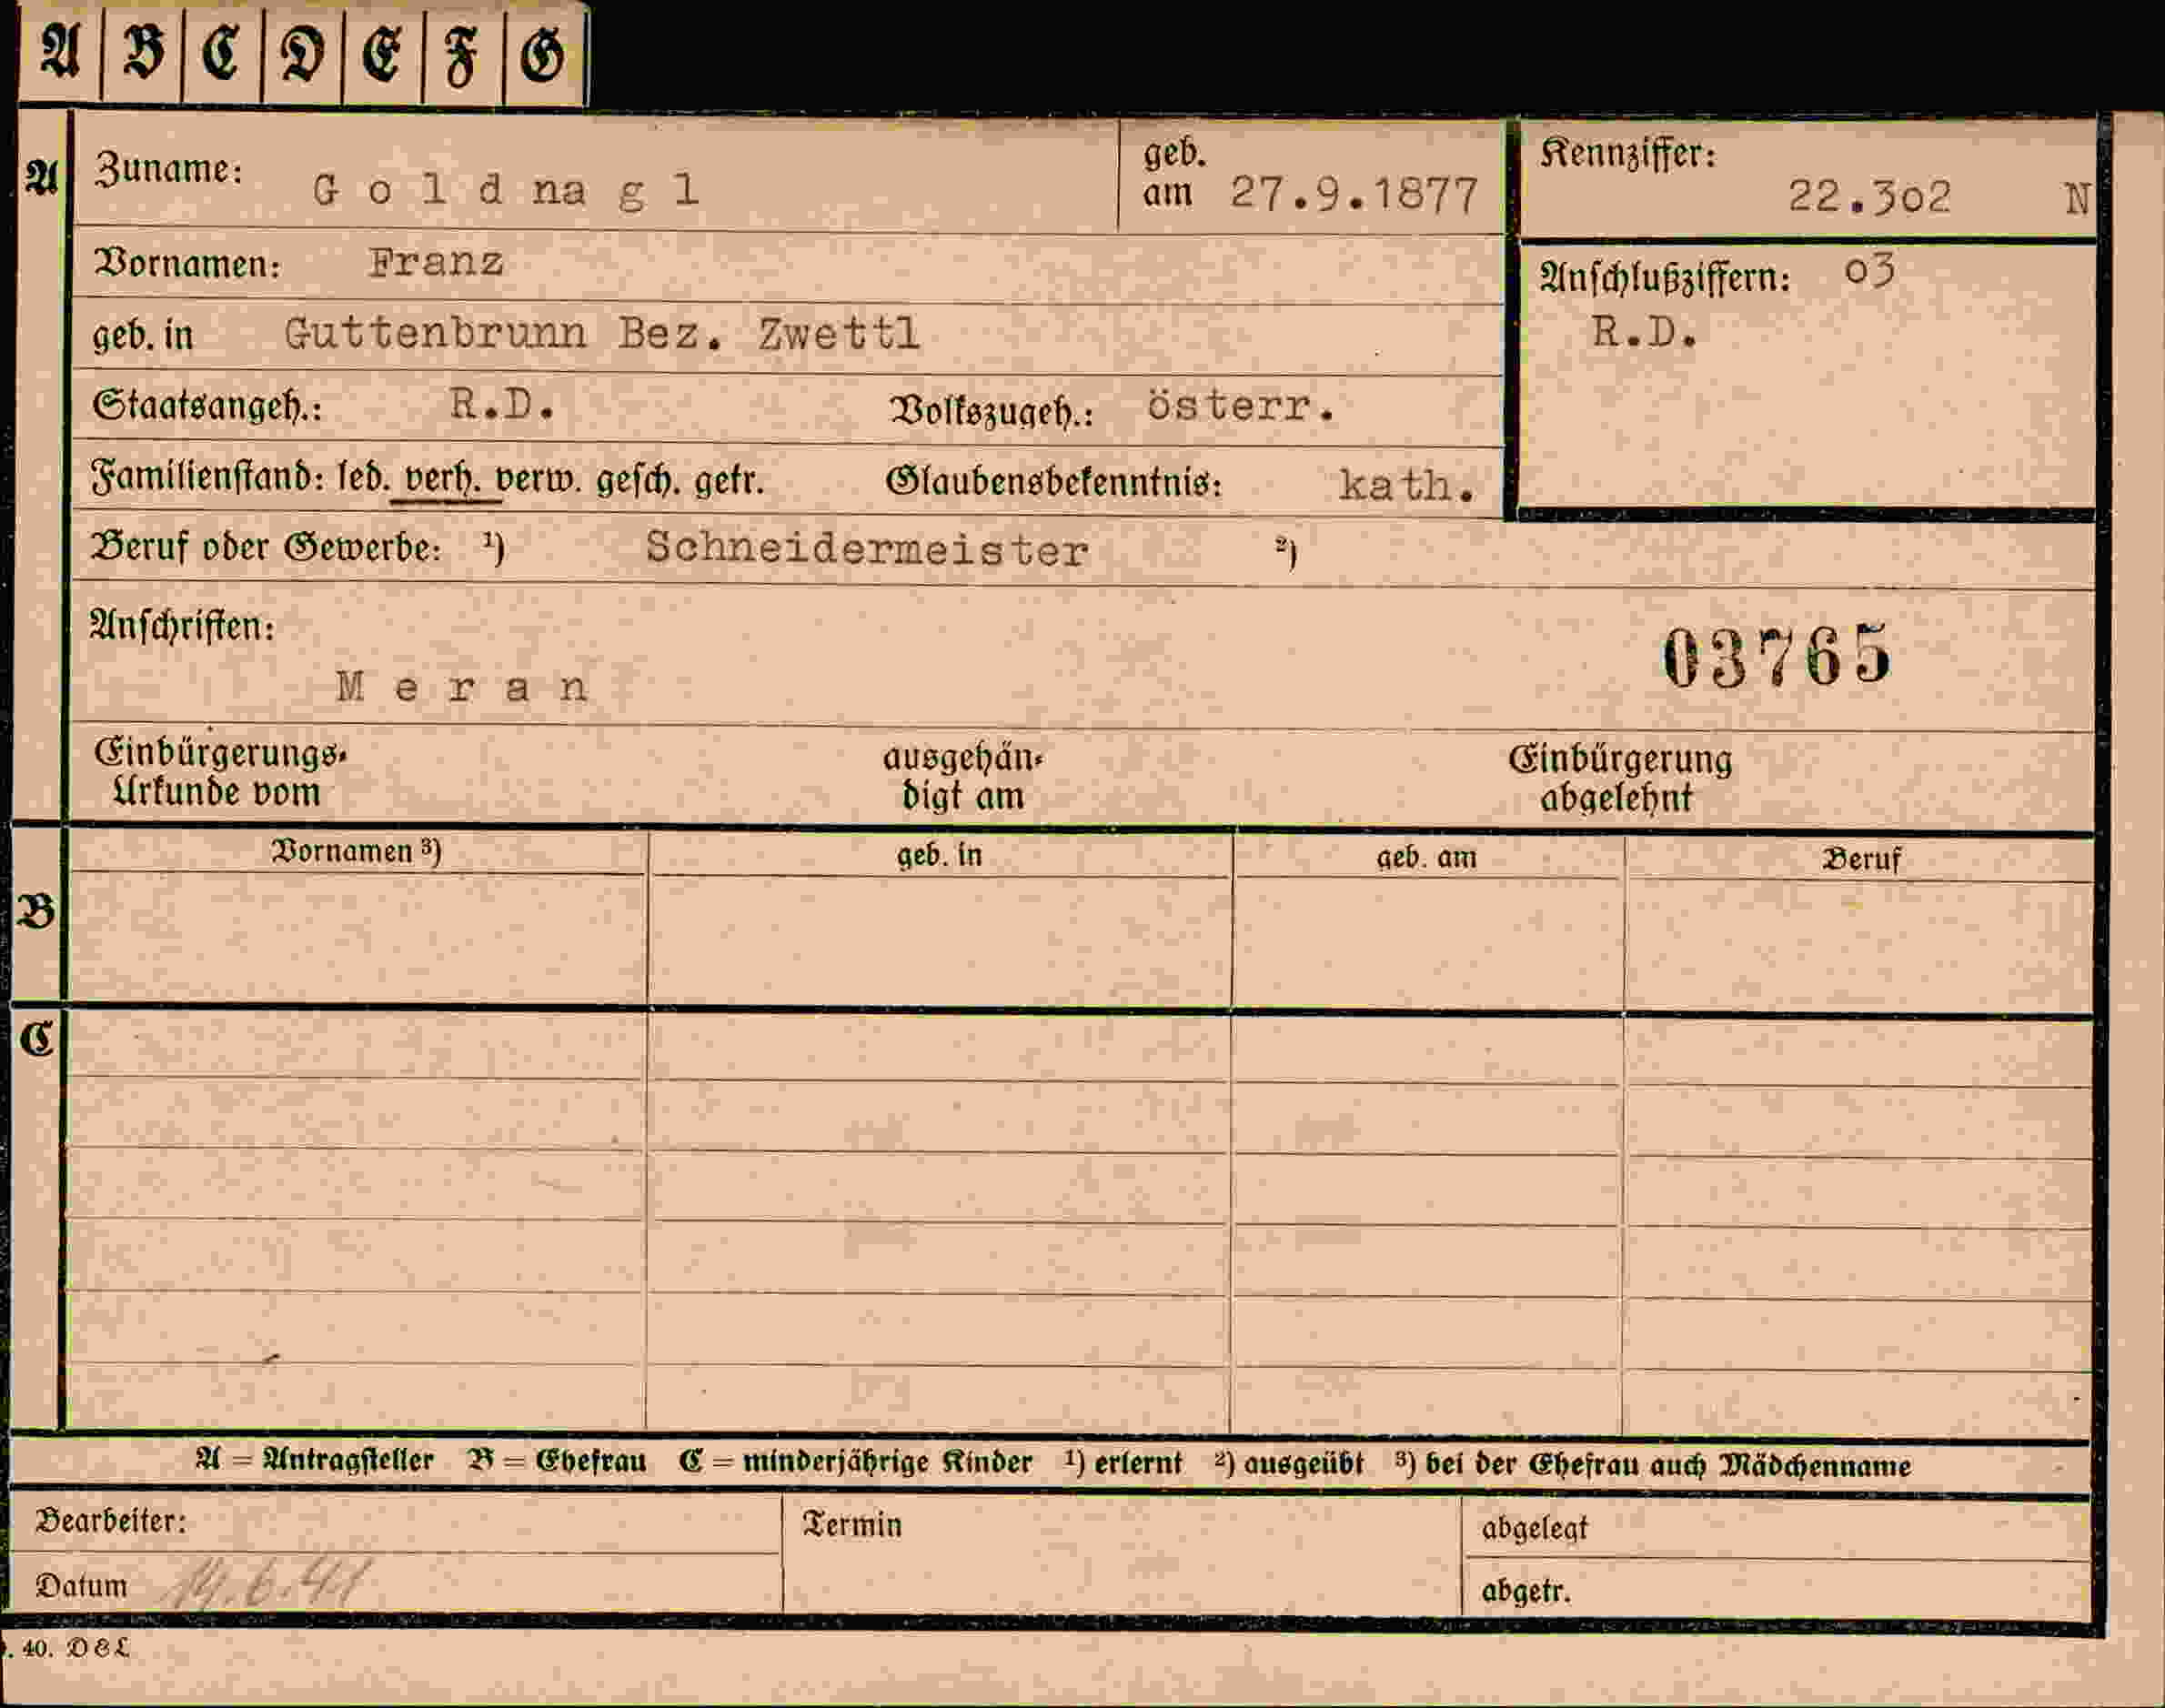 A B C D E F G
A Zuname: Goldnagl geb. am 27.9.1877 Kennziffer: 22.302 N
Vornamen: Franz Anschlußziffern: 03
geb. in Guttenbrunn Bez. Zwettl R.D.
Staatsangeh.: R.D. Volkszugeh.: österr.
Familienstand: led. verh. verw. gesch. getr. Glaubensbekenntnis: kath.
Beruf oder Gewerbe: ¹) Schneidermeister ²)
Anschriften:
Meran 03765
Einbürgerungs- ausgehän- Einbürgerung
Urkunde vom digt am abgelehnt
Vornamen ³) geb. in geb. am Beruf
B
C
A = Antragsteller B = Ehefrau C = minderjährige Kinder ¹) erlernt ²) ausgeübt ³) bei der Ehefrau auch Mädchenname
Bearbeiter: Termin abgelegt
Datum 14.6.41 abgetr.
. 40. D&L